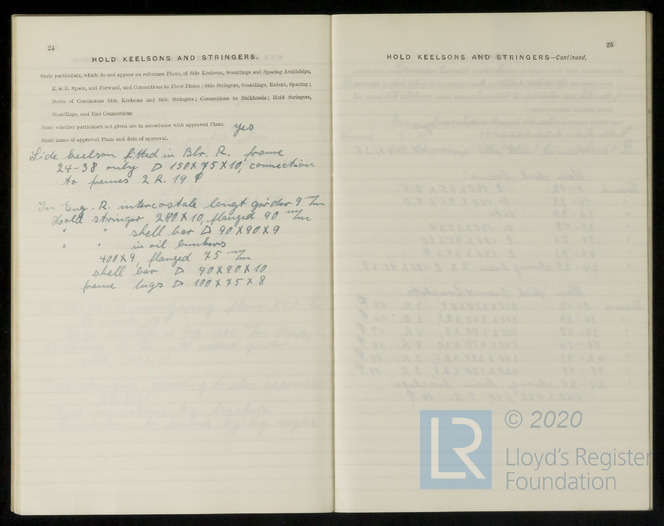 24
HOLD KEELSONS AND STRINGERS.
State particulars, which do not appear on reference Plans, of Side Keelsons, Scantlings and Spacing Amidships,
E. & B. Space, and Forward, and Connections to Floor Plates; Side Stringers, Scantlings, Extent, Spacing;
of Continuous Side Keelsons and Side Stringers; Connections to Bulkheads; Hold Stringers,
Scantlings, and End Connections
State whether particulars not given are in accordance with approved Plans. yes
State name of approved Plans and date of approval.
Side keelson fitted in Blr. R. frame
24-38 only 150 X 75 X 10, connection
to frames 2 R. 19
In Eng. R. intercostals longt girder 9 m/m
Hold stringer 280 X 10, flanged 90 m/m
" " shell bar 90 X 90 X 9
" " in oil bunkers
400 X 9, flanged 75 m/m
shell bar 90 X 90 X 10
frame lugs 100 X 75 X 8
25
HOLD KEELSONS AND STRINGERS—Continued.
LR
© 2020
Lloyd's Register
Foundation